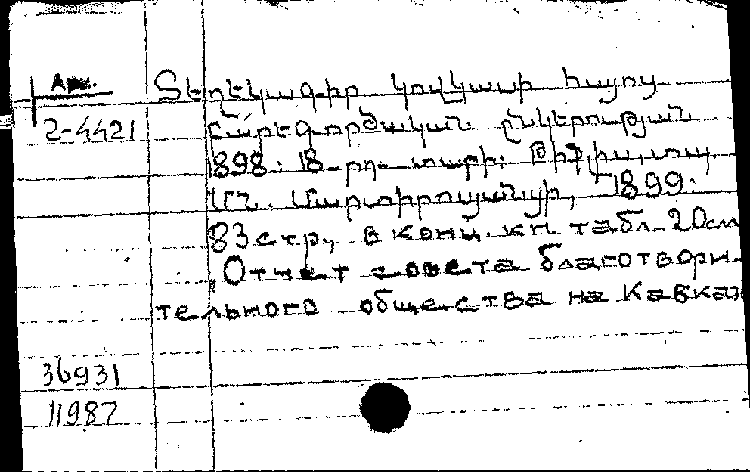 Арм.
2-4421
Տեղեկագիր Կովկասի հայոց
Բարեգործական ընկերության
1898. 18-րդ տարի. Թիֆլիս, տպ.
Մն. Մարտիրոսյանցի, 1899.
83 стр., в конц. кн табл. 20см
Отчет совета благотвори-
тельного общества на Кавказ
36931
11987